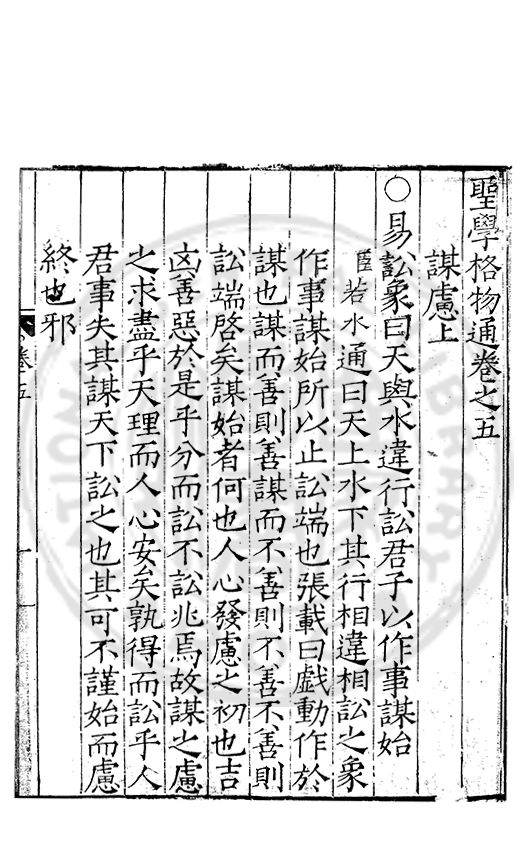 聖學格物通卷之五
謀慮上
○易訟象曰天與水違行訟君子以作事謀始
臣若水通曰天上水下其行相違相訟之象
作事謀始所以止訟端也張載曰戯動作於
謀也謀而善則善謀而不善則不善不善則
訟端啓矣謀始者何也人心發慮之初也吉
凶善惡於是乎分而訟不訟兆焉故謀之慮
之求盡乎天理而人心安矣孰得而訟乎人
君事失其謀天下訟之也其可不謹始而慮
終也邪
卷五
一